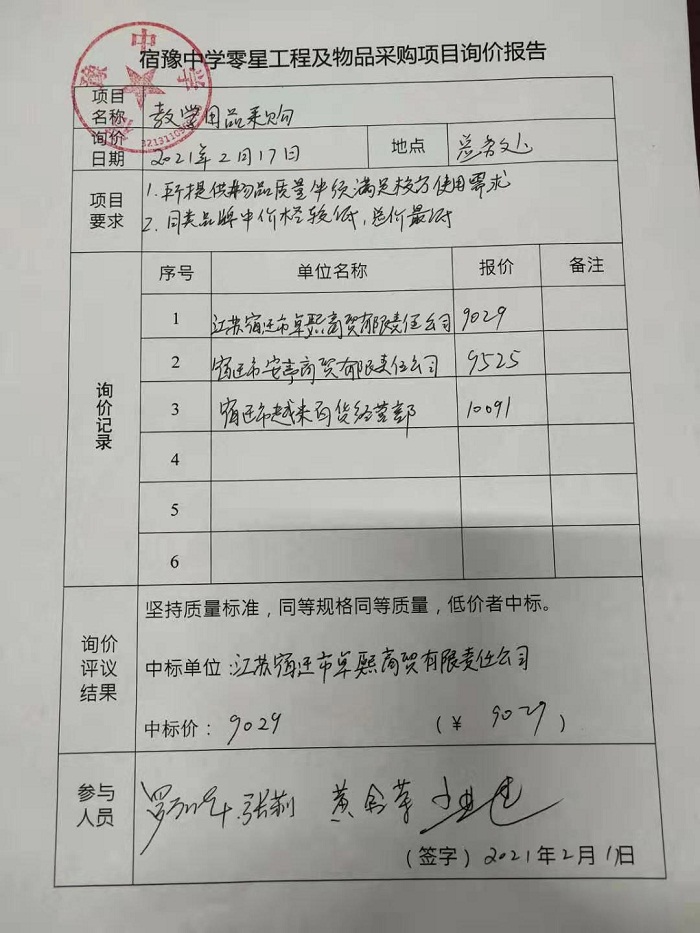 宿豫中学零星工程及物品采购项目询价报告
项目名称 教学用品采购
询价日期 2021年2月17日 地点 总务处
项目要求 1. 所提供物品质量必须满足校方使用需求
2. 同类品牌中价格较低，总价最低
询价记录
序号 单位名称 报价 备注
1 江苏宿迁市卓熙商贸有限责任公司 9029
2 宿迁市安亭商贸有限责任公司 9525
3 宿迁市越来百货经营部 10091
4
5
6
询价评议结果
坚持质量标准，同等规格同等质量，低价者中标。
中标单位：江苏宿迁市卓熙商贸有限责任公司
中标价： 9029 （¥ 9029 ）
参与人员
张莉 黄
（签字） 2021年2月17日
豫中学
3213110